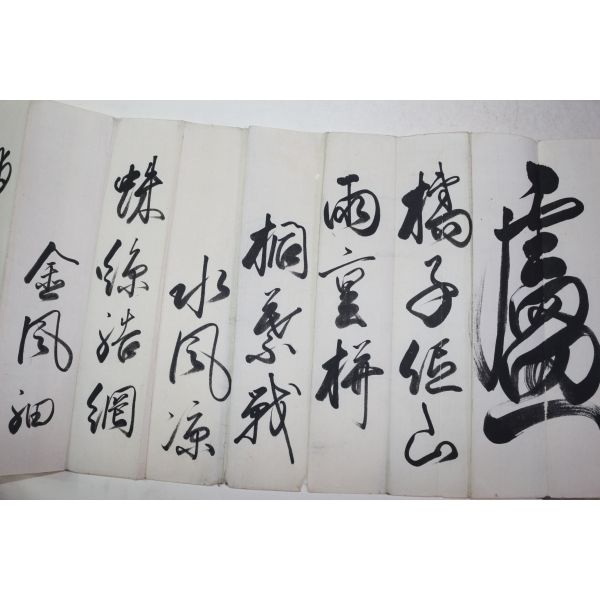 盧
橘子低山
雨重栟
櫚葉戰
水風凉
蛛絲結網
金風細